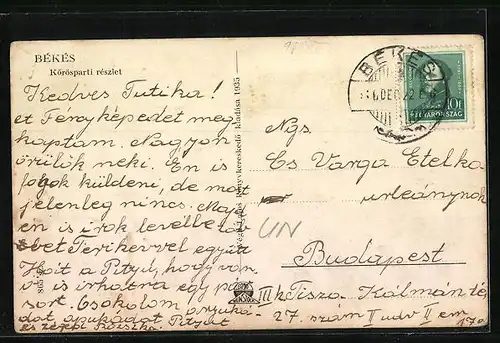 BÉKÉS
Kőrösparti részlet
Kedves Tutika!
et Fényképedet meg
kaptam. Nagyon
örülök neki. Én is
fogok küldeni, de most
jelenleg nincs. Maj
én is irok levelbe
Terikervel együtt
Hát a Pityu, hogy van
is irhatna egy pár
sort. Csokolom anyuká
dat apukádat Pityut
és
kereskedő kiadása 1935
BÉKÉS
DEC 22
10f
MAGYARORSZÁG
Ngs.
Cs Varga Etelka
urleánynak
UN
Budapest
III k Tisza Kálmán té
27. szám II udv II em
170